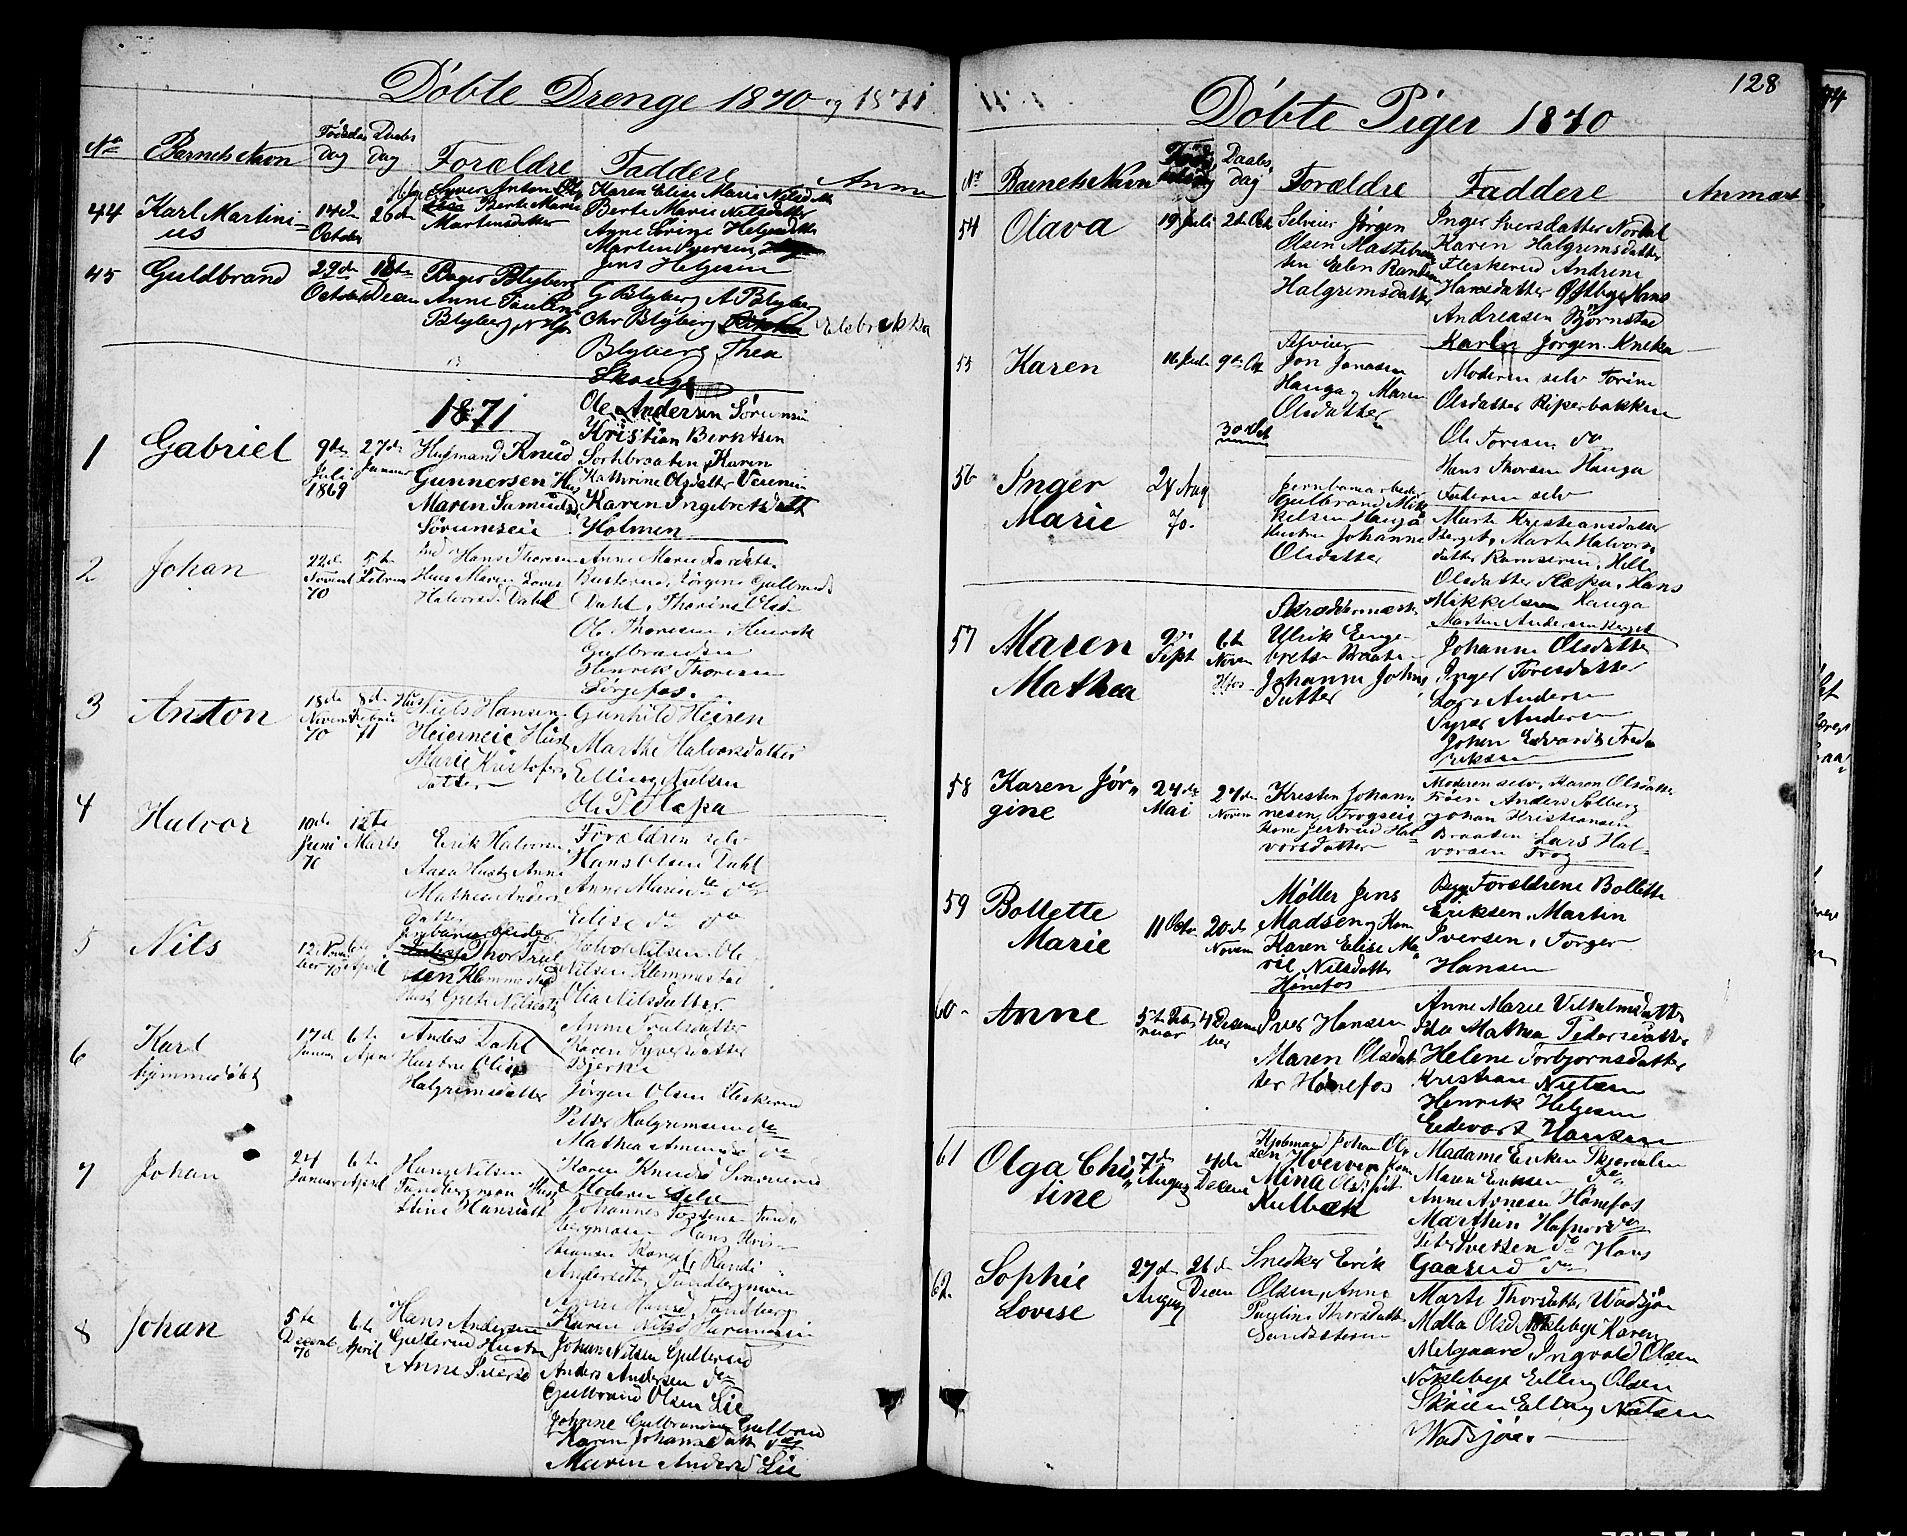 Döbte Drenge 1870 og 1871
No
Barnets Navn
Fødsels
dag
Daabs
dag
Forældre
Faddere
Anm
44
Karl Martini=
us
14de
October
26de
Hfos
Syver Anton Ols
Berte Marie
Martinsdatter
Karen Elise Marie Nilsdatt
Berte Marie Nilsdatter
Agne Sörine Helgesdatter
Marten Iversen
Jens Helgesen
45
Guldbrand
29de
October
18de
Decem
Bager Blyberg
Anne Pauline
Blyberg, Hfos
G Blyberg A Blyberg
Chr Blyberg
Blyberg Thea
Skougs
1871
1
Gabriel
9de
Juli
1869
27de
Januar
Husmand Knud
Gunnersen Hus
Maren Samuelsd
Sörumseie
Ole Andersen Sörumsei
Kristian Berntsen
Sortebraaten, Karen
Kathrine Olsdatter
Karen Ingebretsdatt
Holmen
2
Johan
22de
Novemb
70
5te
Februar
Hans Thoresen
Hus Maren Lovis
Halvorsd. Dahl
Anne Marie Larsdatter
Jörgine Gulbrands
Dahl, Thorine Olsd
Ole Thoresen Henrik
Gulbrandsen
Henrik Thoresen
Sörgefos.
3
Anton
18de
Novemb
70
8de
Februar
71
Niels Hansen
Heieneie Hust
Marie Kristofers
datter
Gunhild Heieren
Marthe Halvorsdatter
Elling Nielsen
Ole P Ræpa
4
Halvor
10de
Juni
70
12te
Marts
Erik Halvorsen
Aasa Hust Anne
Mathea Anders
datter
Forældren selv
Hans Olsen Dahl
Anne Marie do
Elise do do
5
Nils
12 Novem
ber 70
6te
April
Jernbanearbeider
Thor Truls
sen Klemmestad
Hust Grete Nilsdatt
Halvor Nilsen Ole
Nilsen Klemmestad
Olia Nilsdatter
Anne Trulsdatter
6
Karl
hjemmedöbt
17de
Januar
6te
April
Anders Dahl
Hustru Olia
Halgrimsdatter
Karen Syversdatter
Bjerke
Jörgen Olsen Fleskerud
Petter Halgrimsen do
Mathea Amunds do
7
Johan
24
Januar
6te
April
Hans Nilsen
Tandbergmoen Hust
Stine Hansdatt
Karen Knuds Simmerud
Moderen Selv
Johannes Tostens Tand=
bergmoen Hans Kris=
tiansen Randi
Andersdtt, Tandbergmoen
Anne Hansd, Tandberg
8
Johan
5te
Decemb
70
6te
April
Hans Andersen
Gullerud Hustru
Anne Iversd
Karen Nilsd
Johan Nilsen Gullerud
Anders Andersen do
Gulbrand Olsen Lie
Johnne Gulbrandsen Gullerud
Karen Johansdatt do
Maren Andersd Lie
128
Döbte Piger 1870
No
Barnets Navn
Daabs
dag
Forældre
Faddere
Anmærk
54
Olava
19 Juli
2de Oct
Selveier Jörgen
Olsen Mastebraa
ten Eelen Randine
Halgrimsdatter
Inger Iversdatter Nordal
Karen Halgrimsdatter
Fleskerud Andrine
Hansdatter Oftbye Hans
Andreasen Björnstad
Karl Jörgen Kneka
55
Karen
16 Juli
9de Oct
Selveier
Jon Jonasen
Hauga, Maren
Olsdatter
Moderen selv Torine
Olsdatter Riperbakken
Ole Toresen do
Hans Thorsen Hauga
56
Inger
Marie
24 Aug
70.
30 Oct
Jernbanearbeider
Gulbrand Mik
kelsen Hauga
Hustru Johanne
Olsdatter
Faderen selv
Marte Kristiansdatter
Berget, Marte Halvors
datter Ramseren, Helle
Olsdatter Ræpa, Hans
Mikkelsen Hauga
Marten Andersen Berget
57
Maren
Mathea
9de
Sept
6te
Novem
Hfos
Skreddermester
Ulrik Enge=
bretsen Braate=
Johanne Johns
datter
Johanne Olsdatter
Inger Toresdatter
Lars Andersen
Syver Andersen
Johan Edvardt Fred
riksen
58
Karen Jör=
gine
24de
Mai
27de
Novem
Kresten Johan=
nesen, Frogseie
Kone Jertrud Hal
vorsdatter
Moderen selv, Karen Olsdatter
Fröen Anders Solberg
Johan Kristiansen
Braaten Lars Hal=
vorsen Frog
59
Bollette
Marie
11 Octbr
20de
Novem
Møller Jens
Madsen, Kone
Karen Elise Ma
rie Nilsdatter
Hönefos
Forældrene Bollette
Eriksen, Martin
Iversen, Torger
Hansen
60
Anne
5te Feb
ruar
4 Decem
ber
Iver Hansen
Maren Olsdat
ter Hönefos
Anne Marie Vilhelmsdatter
Ida Mathea Pedersdatter
Helene Torbjornsdatter
Kristian Nielsen
Henrik Helgesen
Eedvart Hansen
61
Olga Chri
stine
7de
August
4de
Decem
Kjöbmand Johan Ol
sen Hverven Kone
Mina Olsdatt
Kulbæk
Madame Eriken Skjerdalen
Maren Eriksen do
Anne Arnesen Hönefos
Marthin Hafnor do
Peter Iversen do Hans
Gaarud do
62.
Sophie
Lovise
27de
August
26de
Decem
Snedker Erik
Olsen, Anne
Pauline Thorsdatter
Sandsæteren
Marte Thorsdatter Wadsjøe
Malla Olsd Nokleby Karen
Melgaard Ingvald Olsen
Nokleby Elling Olsen
Skøien Elling Nielsen
Wadsjøe.